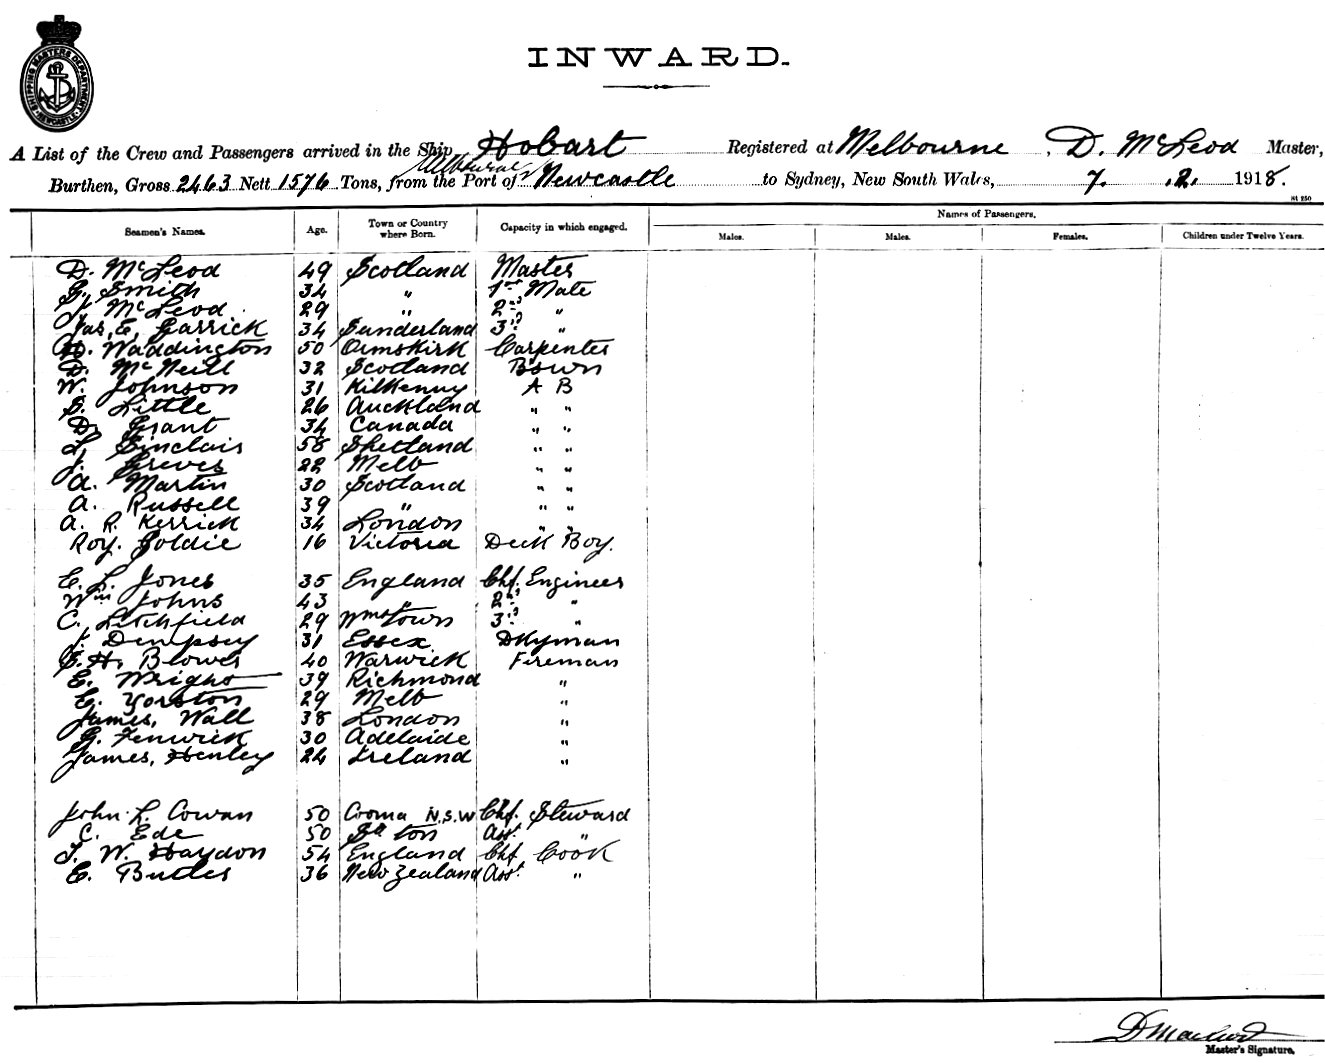 SHIPPING MASTERS DEPARTMENT
NEWCASTLE
INWARD.
A List of the Crew and Passengers arrived in the Ship Hobart Registered at Melbourne, D. McLeod Master,
Melbourne
Burthen, Gross 2463 Nett 1576 Tons, from the Port of Newcastle to Sydney, New South Wales, 7. .2. 1918.
Names of Passengers.
Seamen's Names. Age. Town or Country where Born. Capacity in which engaged. Males. Males. Females. Children under Twelve Years.
D. McLeod 49 Scotland Master
G. Smith 34 " 1st Mate
J. McLeod 29 " 2nd "
Jas. E. Garrick 34 Sunderland 3rd "
Waddington 50 Ormskirk Carpenter
D. McNeill 32 Scotland Bswn
W. Johnson 31 Kilkenny A B
S. Little 26 Auckland " "
D. Grant 34 Canada " "
L. Sinclair 58 Shetland " "
J. Greves 22 Melb " "
A. Martin 30 Scotland " "
A. Russell 39 " " "
A. R. Kerrick 34 London " "
Roy. Goldie 16 Victoria Deck Boy.
E. L. Jones 35 England Chf. Engineer
Wm Johns 43 " 2nd "
C. Litchfield 29 Wmstown 3rd "
J. Dempsey 31 Essex. Dkyman
E. H. Blower 40 Warwick Fireman
E. Wright 39 Richmond "
E. Yorston 29 Melb "
James, Wall 38 London "
G. Fenwick 30 Adelaide "
James, Henley 24 Ireland "
John. L. Cowan 50 Cooma N.S.W Chf. Steward
C. Ede 50 Sth ton Asst. "
T. W. Haydon 54 England Chf Cook
E. Butler 36 New Zealand Asst. "
Master's Signature.